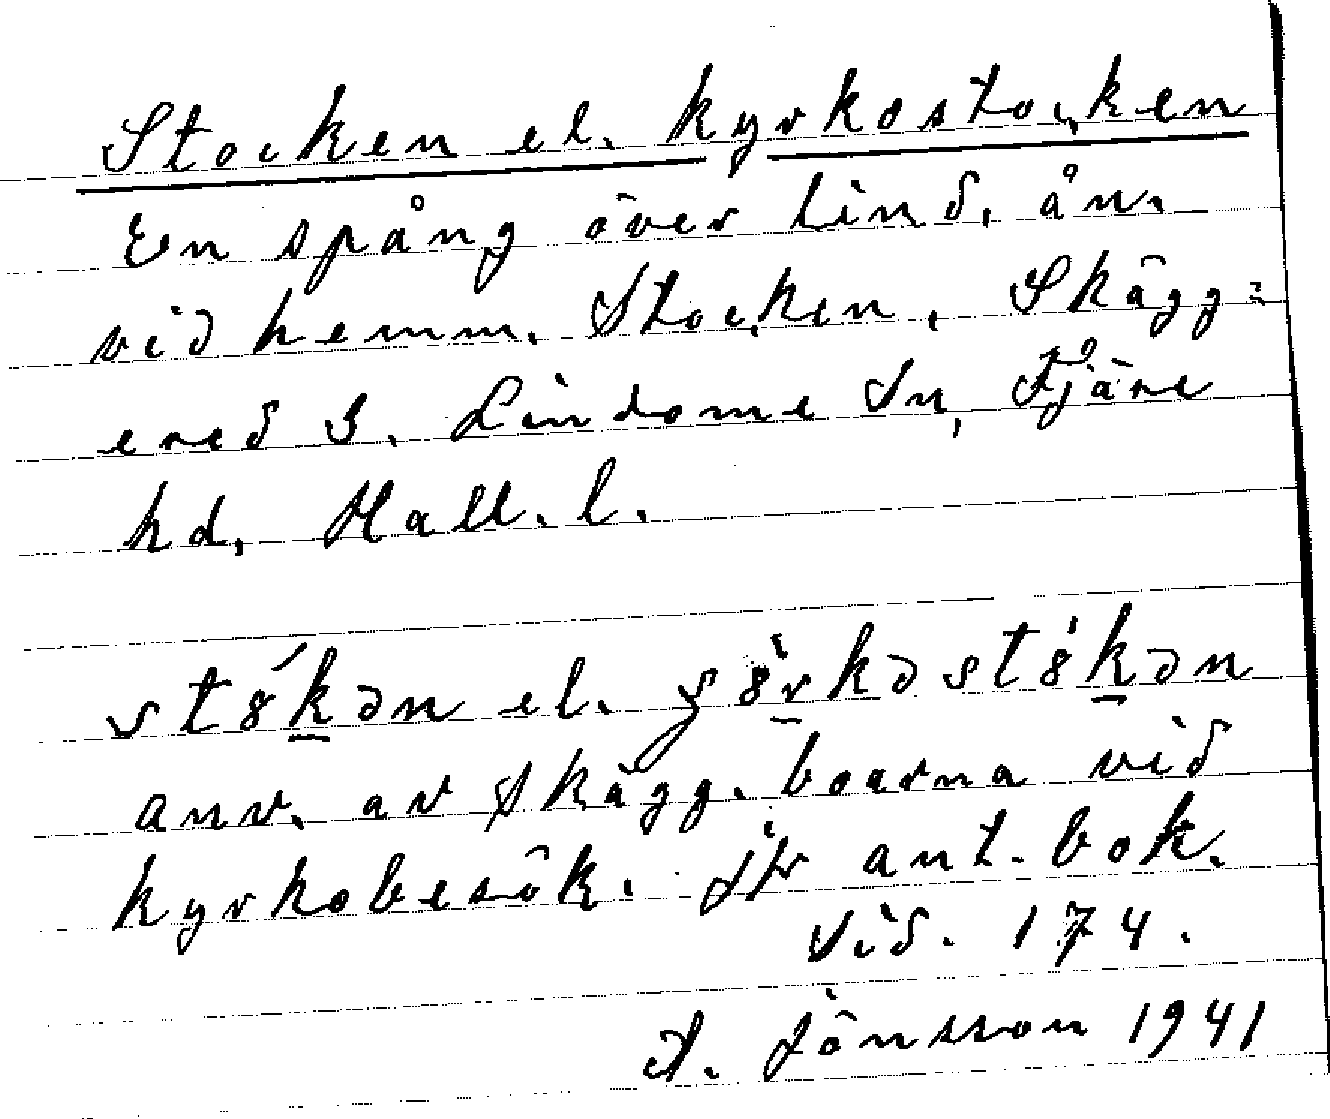 Stocken el. Kyrkostocken
En spång över Lind. ån.
vid hemm. Stocken, Skägg-
ered S. Lindome Sn, Fjäre
hd, Hall. l.
stók̲ən el.
anv. av Skägg.boarna vid
kyrkobesök. Jfr ant.bok.
Sid. 174.
A. Jönsson 1941